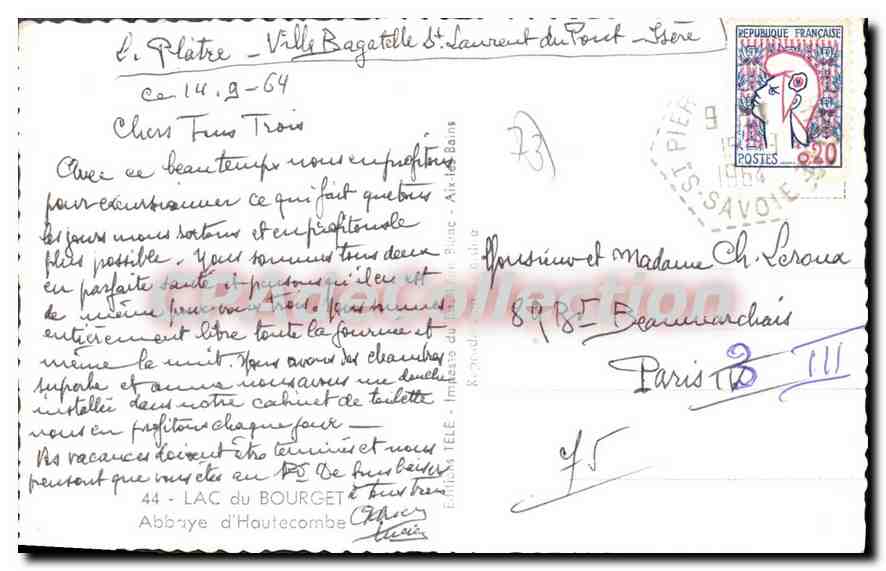 L. Plâtre - Ville Bagatelle St. Laurent du Pont - Isère
ce 14.9-64
Chers Tous Trois
Avec ce beau temps nous en profitons
pour excursionner ce qui fait que tous
les jours nous sortons et en profitons le
plus possible. Nous sommes tous deux
en parfaite santé et pensons qu'il en est
de même pour vous trois. Nous sommes
entièrement libre toute la journée et
même la nuit. Nous avons des chambres
superbe et nous avons une douche
installée dans notre cabinet de toilette
nous en profitons chaque jour -
Vos vacances doivent être terminés et nous
pensons que vous êtes au De bons baisers
à tous trois
Lucien
44 - LAC du BOURGET
Abbaye d'Hautecombe
Editions TELE - Impasse du Blanc - Aix-les-Bains
73
REPUBLIQUE FRANÇAISE
POSTES 0,20
ST PIER
9
1964
SAVOIE
Monsieur et Madame Ch. Leroux
89 Bd Beaumarchais
Paris 3 III
75
CPA Collection